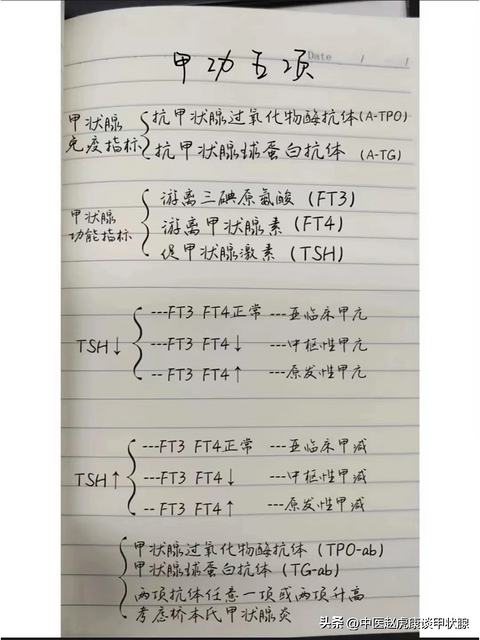 Date / /
甲功五项
甲状腺免疫指标
抗甲状腺过氧化物酶抗体(A-TPO)
抗甲状腺球蛋白抗体(A-TG)
甲状腺功能指标
游离三碘原氨酸(FT3)
游离甲状腺素(FT4)
促甲状腺激素(TSH)
TSH↓
---FT3 FT4正常 ---亚临床甲亢
---FT3 FT4↓ ---中枢性甲亢
--FT3 FT4↑ ---原发性甲亢
TSH↑
---FT3 FT4正常 ---亚临床甲减
---FT3 FT4↓ ---中枢性甲减
--FT3 FT4↑ ---原发性甲减
甲状腺过氧化物酶抗体(TPO-ab)
甲状腺球蛋白抗体(TG-ab)
两项抗体任意一项或两项升高
考虑桥本氏甲状腺炎
头条 @中医赵虎康谈甲状腺